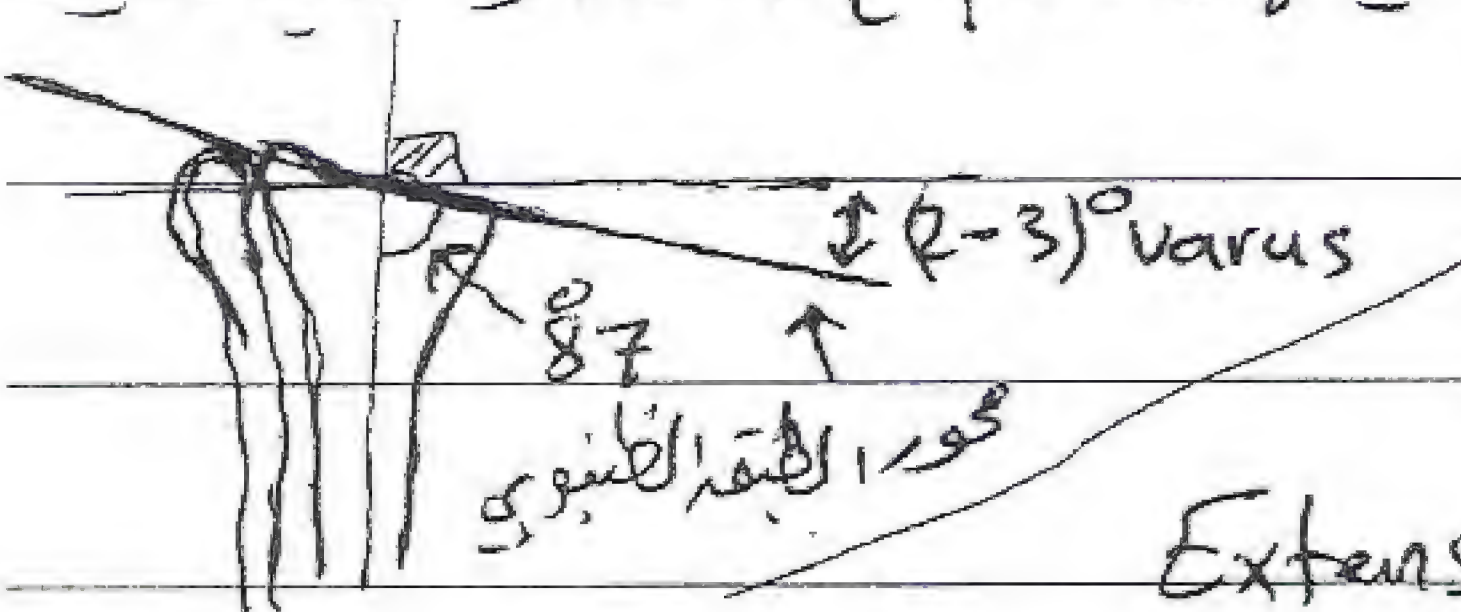 (2-3)° varus
87°
محور الطبق الظنبوي
Extens